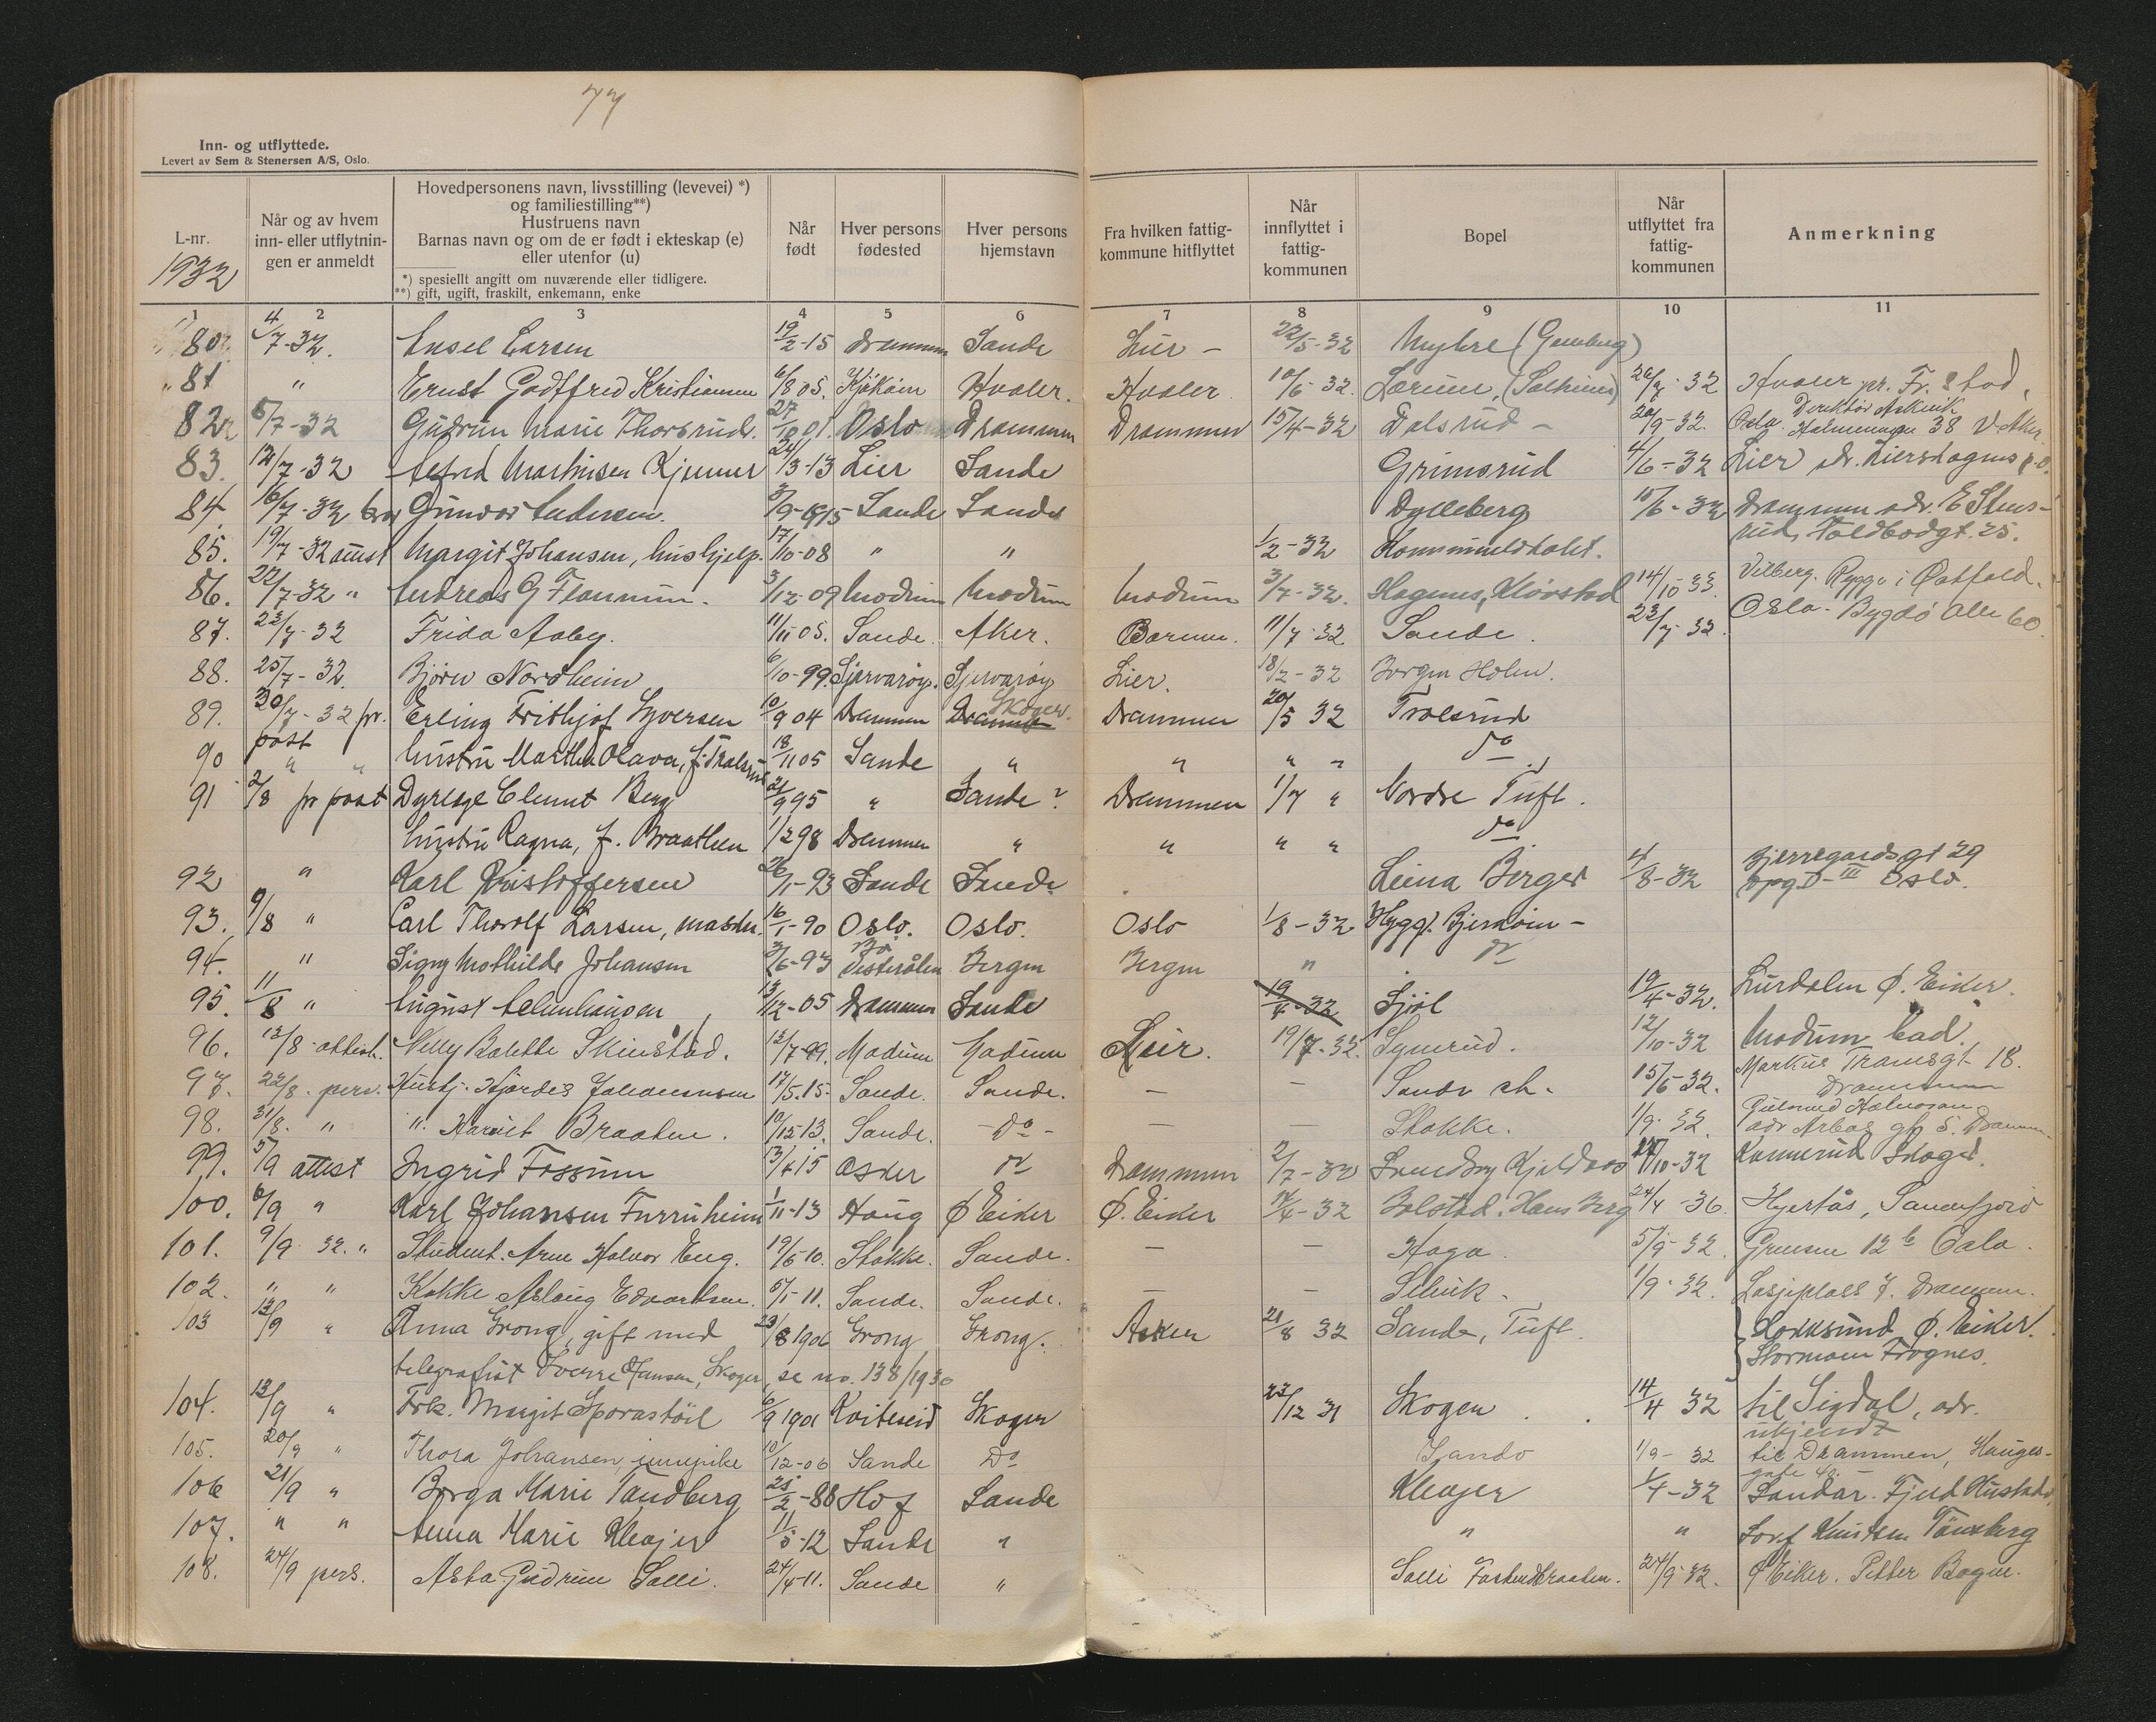 77
Inn- og utflyttede.
Levert av Sem & Stenersen A/S, Oslo.
L-nr.
1932
Når og av hvem
inn- eller utflytnin-
gen er anmeldt
Hovedpersonens navn, livsstilling (levevei) *)
og familiestilling**)
Hustruens navn
Barnas navn og om de er født i ekteskap (e)
eller utenfor (u)
*) spesiellt angitt om nuværende eller tidligere.
**) gift, ugift, fraskilt, enkemann, enke
Når
født
Hver persons
fødested
Hver persons
hjemstavn
Fra hvilken fattig-
kommune hitflyttet
Når
innflyttet i
fattig-
kommunen
Bopel
Når
utflyttet fra
fattig-
kommunen
Anmerkning
1 2 3 4 5 6 7 8 9 10 11
80 4/7-32. Larsen 19/2-15 Drammen Sande Lier - 22/5-32 Myhre
81 " Ernst Godtfred Kristiansen 6/8 05. Hvaler. Hvaler 10/6-32. 32 Hvaler pr. Fr.stad,
82 5/7-32 Gudrun Marie Thorsrud. 27/10 01. Oslo Drammen Drammen 15/4-32 Dalsrud - 20/9-32. Oslo. Direktör 38 V. Aker
83. 12/7-32 Martinsen Kjenner 24/3-13 Lier Sande Grimsrud 4/6-32 Lier adr. Lierskogens p.o.
84. 16/7-32 Gunvor Andersen. 15 Sande Sande Dylleberg 10/6-32 Drammen adr. E Stens-
rud, Toldbodgt. 25.
85. 19/7-32 attest Margit Johansen, hushjelp. 17/10-08 " " 1/2-32
86. 22/7-32 " Andreas G Flannum. 3/12-09 Modum Modum Modum 3/7-32. Hagnes, Kløvstad 14/10 33. Vilberg. Rygge i Østfold.
87. 23/7-32 Frida Aaby. 11/11 05. Sande. Aker. Bærum. 11/7-32 Sande. 23/7-32. Oslo - Bygdö Alle 60.
88. 25/7-32. Björn Nordheim 6/10-99. Lier. 18/2-32 Borgen Holm.
89. 30/7-32 pr. post Erling Frithjof Syversen 10/9 04 Drammen Drammen Skoger. Drammen 20/5 32 Trolsrud
90 " " hustru Martha Olava, f. Trolsrud 18/11 05 Sande " " " " do
91 2/8 pr post Clemet Berg 21/9 95 " Sande? Drammen 1/7 " Nordre Tuft.
hustru Ragna, f. Braathen 1/2 98 Drammen " " " " do
92 " Karl Kristoffersen 26/1-93 Sande Sande Leina Berger 4/8-32 Bjerregaardsgt 29
opg. D-III Oslo.
93. 9/8 " Carl Thorolf Larsen, maskn. 16/1-90 Oslo. Oslo. Oslo 1/8-32 Hygg. -
94. " Signy Mathilde Johansen 3/6-93 Bö Vesterålen Bergen Bergen " do
95. 11/8 " August 13/12-05 Drammen Sande 19/4-32 19/4-32. Ø. Eiker.
96. 12/8 attest. Nelly Balette Skinstad. 12/7-99. Modum Modum Lier. 19/7-32. 12/10-32 Modum bad.
97. 22/8. pers. Hushj. Hjørdis Johannessen 17/5.15- Sande. Sande. - - Sande st. 15/6-32. Markus Tranesgt. 18.
Drammen
98. 31/8. " " Harriet Braaten. 10/12-13. Sande. -Do- - Stokke. 1/9-32.
99. 5/9 attest Ingrid Fossum 13/4 15 Asker do Drammen 2/7-32 Kjeldaas /10-32 Konnerud Skoger.
100. 6/9 " Karl Johansen Furruheim 1/11-13 Haug Ø Eiker Ø. Eiker 14/4-32 Bolstad. Hans Berg 24/4-36. Hjertås, Sandefjord
101. 9/9 32. " Student. Arne Halvor Eng. 19/5 10. Stokke. Sande. - - Haga. 5/9-32. Grensen 12b Oslo.
102. " " Kokke Aslaug Edvardsen. 5/1-11. Sande. Sande. - - Selvik. 1/9-32. Losjeplass 7. Drammen.
103 12/9 " Anna Grong, gift med 23/8 1906 Grong Grong. Asker 21/8 32 Sande, Tuft. Hokksund Ø. Eiker.
telegrafist Sverre Hansen, Skoger, se no. 138/1930 Frognes.
104. 13/9 " Frk. Margit Sporastöil 6/9 1901 Kviteseid Skoger 23/12 31 Skogen 14/4 32 til Sigdal, adr.
ukjendt
105. 20/9 " Thora Johansen, tjenepike 10/12-06 Sande Do Sando 1/9-32 til Drammen, Hauges-
gate
106 21/9 " Borga Marie Tandberg 25/2-88 Hof Sande Kleajer 1/4-32 Sandar. Fjeld
107. " " Anna Marie Kleajer 11/5-12 Sande " " " Knutsen Tönsberg
108. 24/9 pers. Asta Gudrun Solli. 24/4-11. Sande " Solli 24/9-32. Ø Eiker. Petter Bogen.